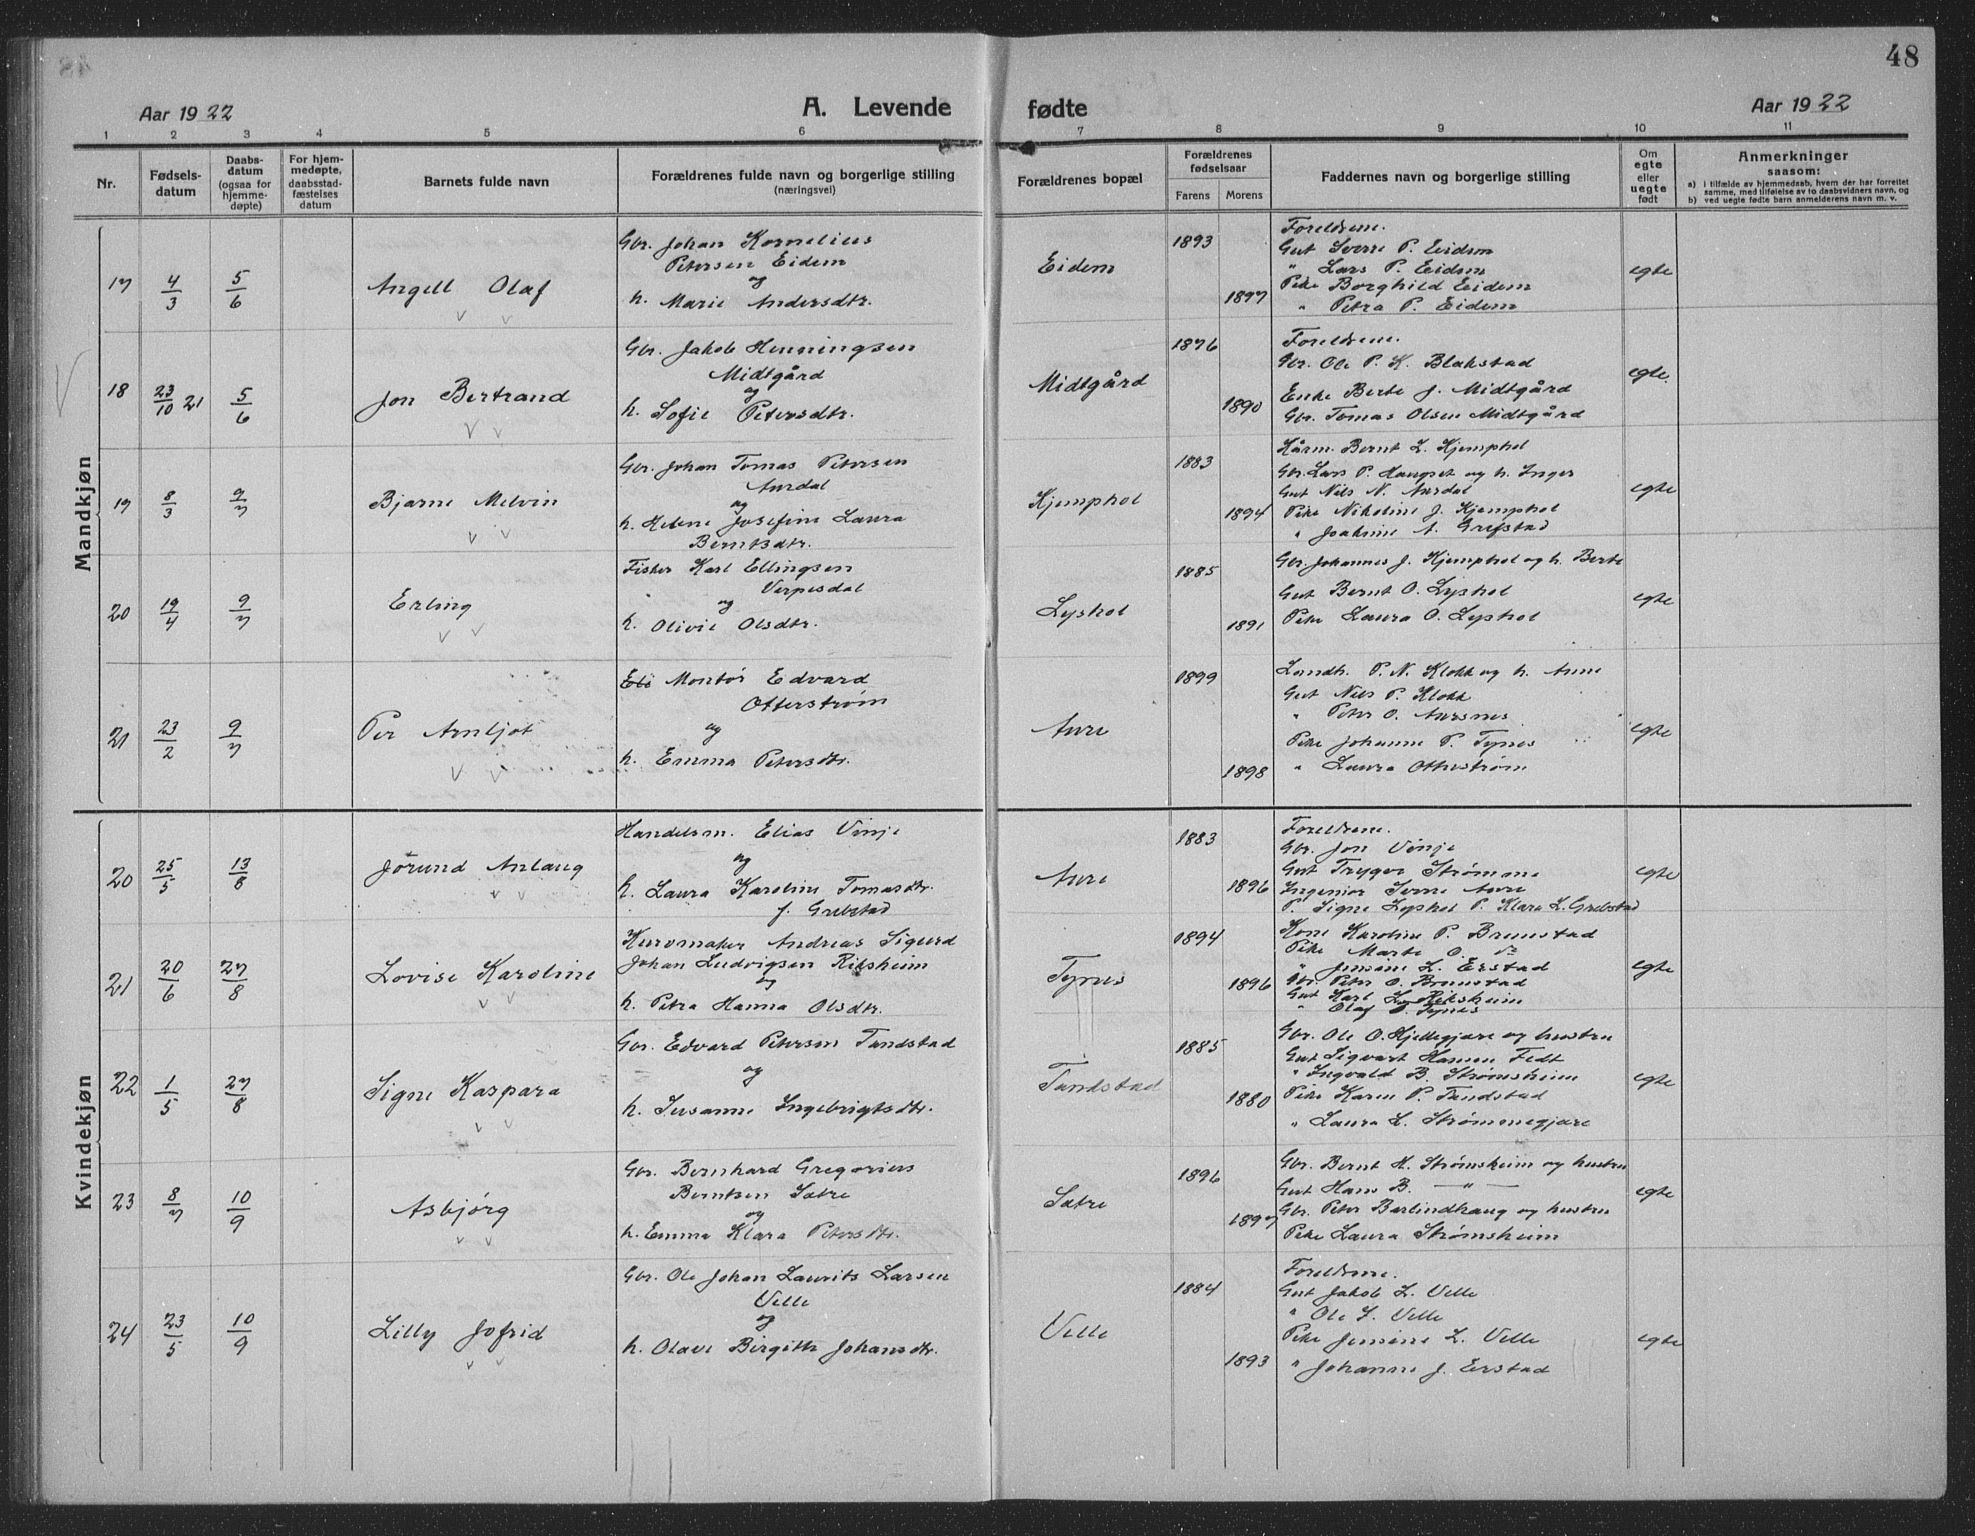 48
Aar 1922
A. Levende fødte
Aar 1922
1 2 3 4 5 6 7 8 9 10 11
Nr.
Fødsels-
datum
Daabs-
datum
(ogsaa for
hjemme-
døpte)
For hjem-
medøpte,
daabsstad-
fæstelses
datum
Barnets fulde navn
Forældrenes fulde navn og borgerlige stilling
(næringsvei)
Forældrenes bopæl
Forældrenes
fødselsaar
Farens Morens
Faddernes navn og borgerlige stilling
Om
egte
eller
uegte
født
Anmerkninger
saasom:
a) i tilfælde av hjemmedaab, hvem der har forrettet
samme, med tilføielse av to daabsvidners navn, og
b) ved uegte fødte barn anmelderens navn m. v.
Mandkjøn
17 4/3 5/6 Angell Olaf
Gbr. Johan Kornelius
Petersen Eidem
og
h. Marie Andersdtr.
Eidem
1893
1897
Foreldrene.
Gut Sverre P. Eidem
" Lars P. Eidem
Pike Borghild Eidem
" Petra P. Eidem
egte
18 23/10 21 5/6 Jon Bertrand
Gbr. Jakob Henningsen
Midtgård
og
h. Sofie Petersdtr.
Midtgård
1876
1890
Foreldrene.
Gbr. Ole P. K. Blakstad
Enke Berte J. Midtgård
Gbr. Tomas Olsen Midtgård
egte.
19 8/3 9/7 Bjarne Melvin
Gbr. Johan Tomas Petersen
Aurdal
og
h. Helene Josefine Laura
Berntsdtr.
Kjemphol
1883
1894
Kårm. Bernt L. Kjemphol
Gbr. Lars P. Haugset og h. Inger
Gut Nils N. Aurdal
Pike Nikoline J. Kjemphol
" Joakine A. Grebstad
egte
20 19/4 9/7 Erling
Fisker Karl Ellingsen
Verpesdal
og
h. Olivie Olsdtr.
Lyshol
1885
1891
Gbr. Johannes J. Kjemphol og h. Berte
Gut Bernt O. Lyshol
Pike Laura O. Lyshol
egte
21 23/2 9/7 Per Arnljot
Montør Edvard
Otterstrøm
og
h. Emma Petersdtr.
Aure
1899
1898
Landh. P. N. Klokk og h. Anne
Gut Nils P. Klokk
" Peter O. Aursnes
Pike Johanne P. Tynes
" Laura Otterstrøm
egte
Kvindekjøn
20 25/5 13/8 Jorund Anlaug
Handelsm. Elias Vinje
og
h. Laura Karoline Tomasdtr.
f. Grebstad
Aure
1883
1896
Foreldrene.
Gbr. Jon Vinje
Gut Trygve Strømme
Ingeniør Sverre Aure
P. Signe Lyshol P. Klara L. Grebstad
egte
21 20/6 27/8 Lovise Karoline
Kurvmaker Andreas Sigurd
Johan Ludvigsen Riksheim
og
h. Petra Hanna Olsdtr.
Tynes
1894
1896
Kone Karoline P. Brunstad
Pike Marte O. do
" Jensine L. Erstad
Gbr. Peter O. Brunstad
Gut Karl L. Riksheim
" Olaf O. Tynes
egte
22 1/5 27/8 Signe Kaspara
Gbr. Edvard Petersen Tandstad
og
h. Susanne Ingebrigtsdtr.
Tandstad
1885
1880
Gbr. Ole O. Hjellegjære og hustru
Gut Sigvart Hansen Fedt
" Ingvald B. Strømsheim
Pike Karen P. Tandstad
" Laura L. Strømmegjære
egte
23 8/7 10/9 Asbjørg
Gbr. Bernhard Gregorius
Berntsen Sætre
og
h. Emma Klara Petersdtr.
Sætre
1896
1897
Gbr. Bernt H. Strømsheim og hustru
Gut Hans B. — " —
Gbr. Peter Barlindhaug og hustru
Pike Laura Strømsheim
egte
24 23/5 10/9 Lilly Jofrid
Gbr. Ole Johan Laurits Larsen
Velle
og
h. Olave Birgitte Johansdtr.
Velle
1884
1893
Foreldrene.
Gut Jakob L. Velle
" Ole J. Velle
Pike Jensine L. Velle
" Johanne J. Erstad
egte